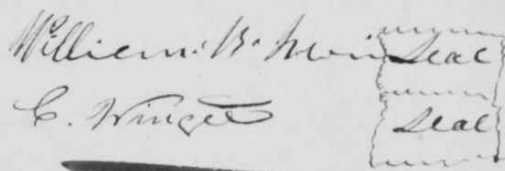 William B. Irwin Seal
C. Winget Seal